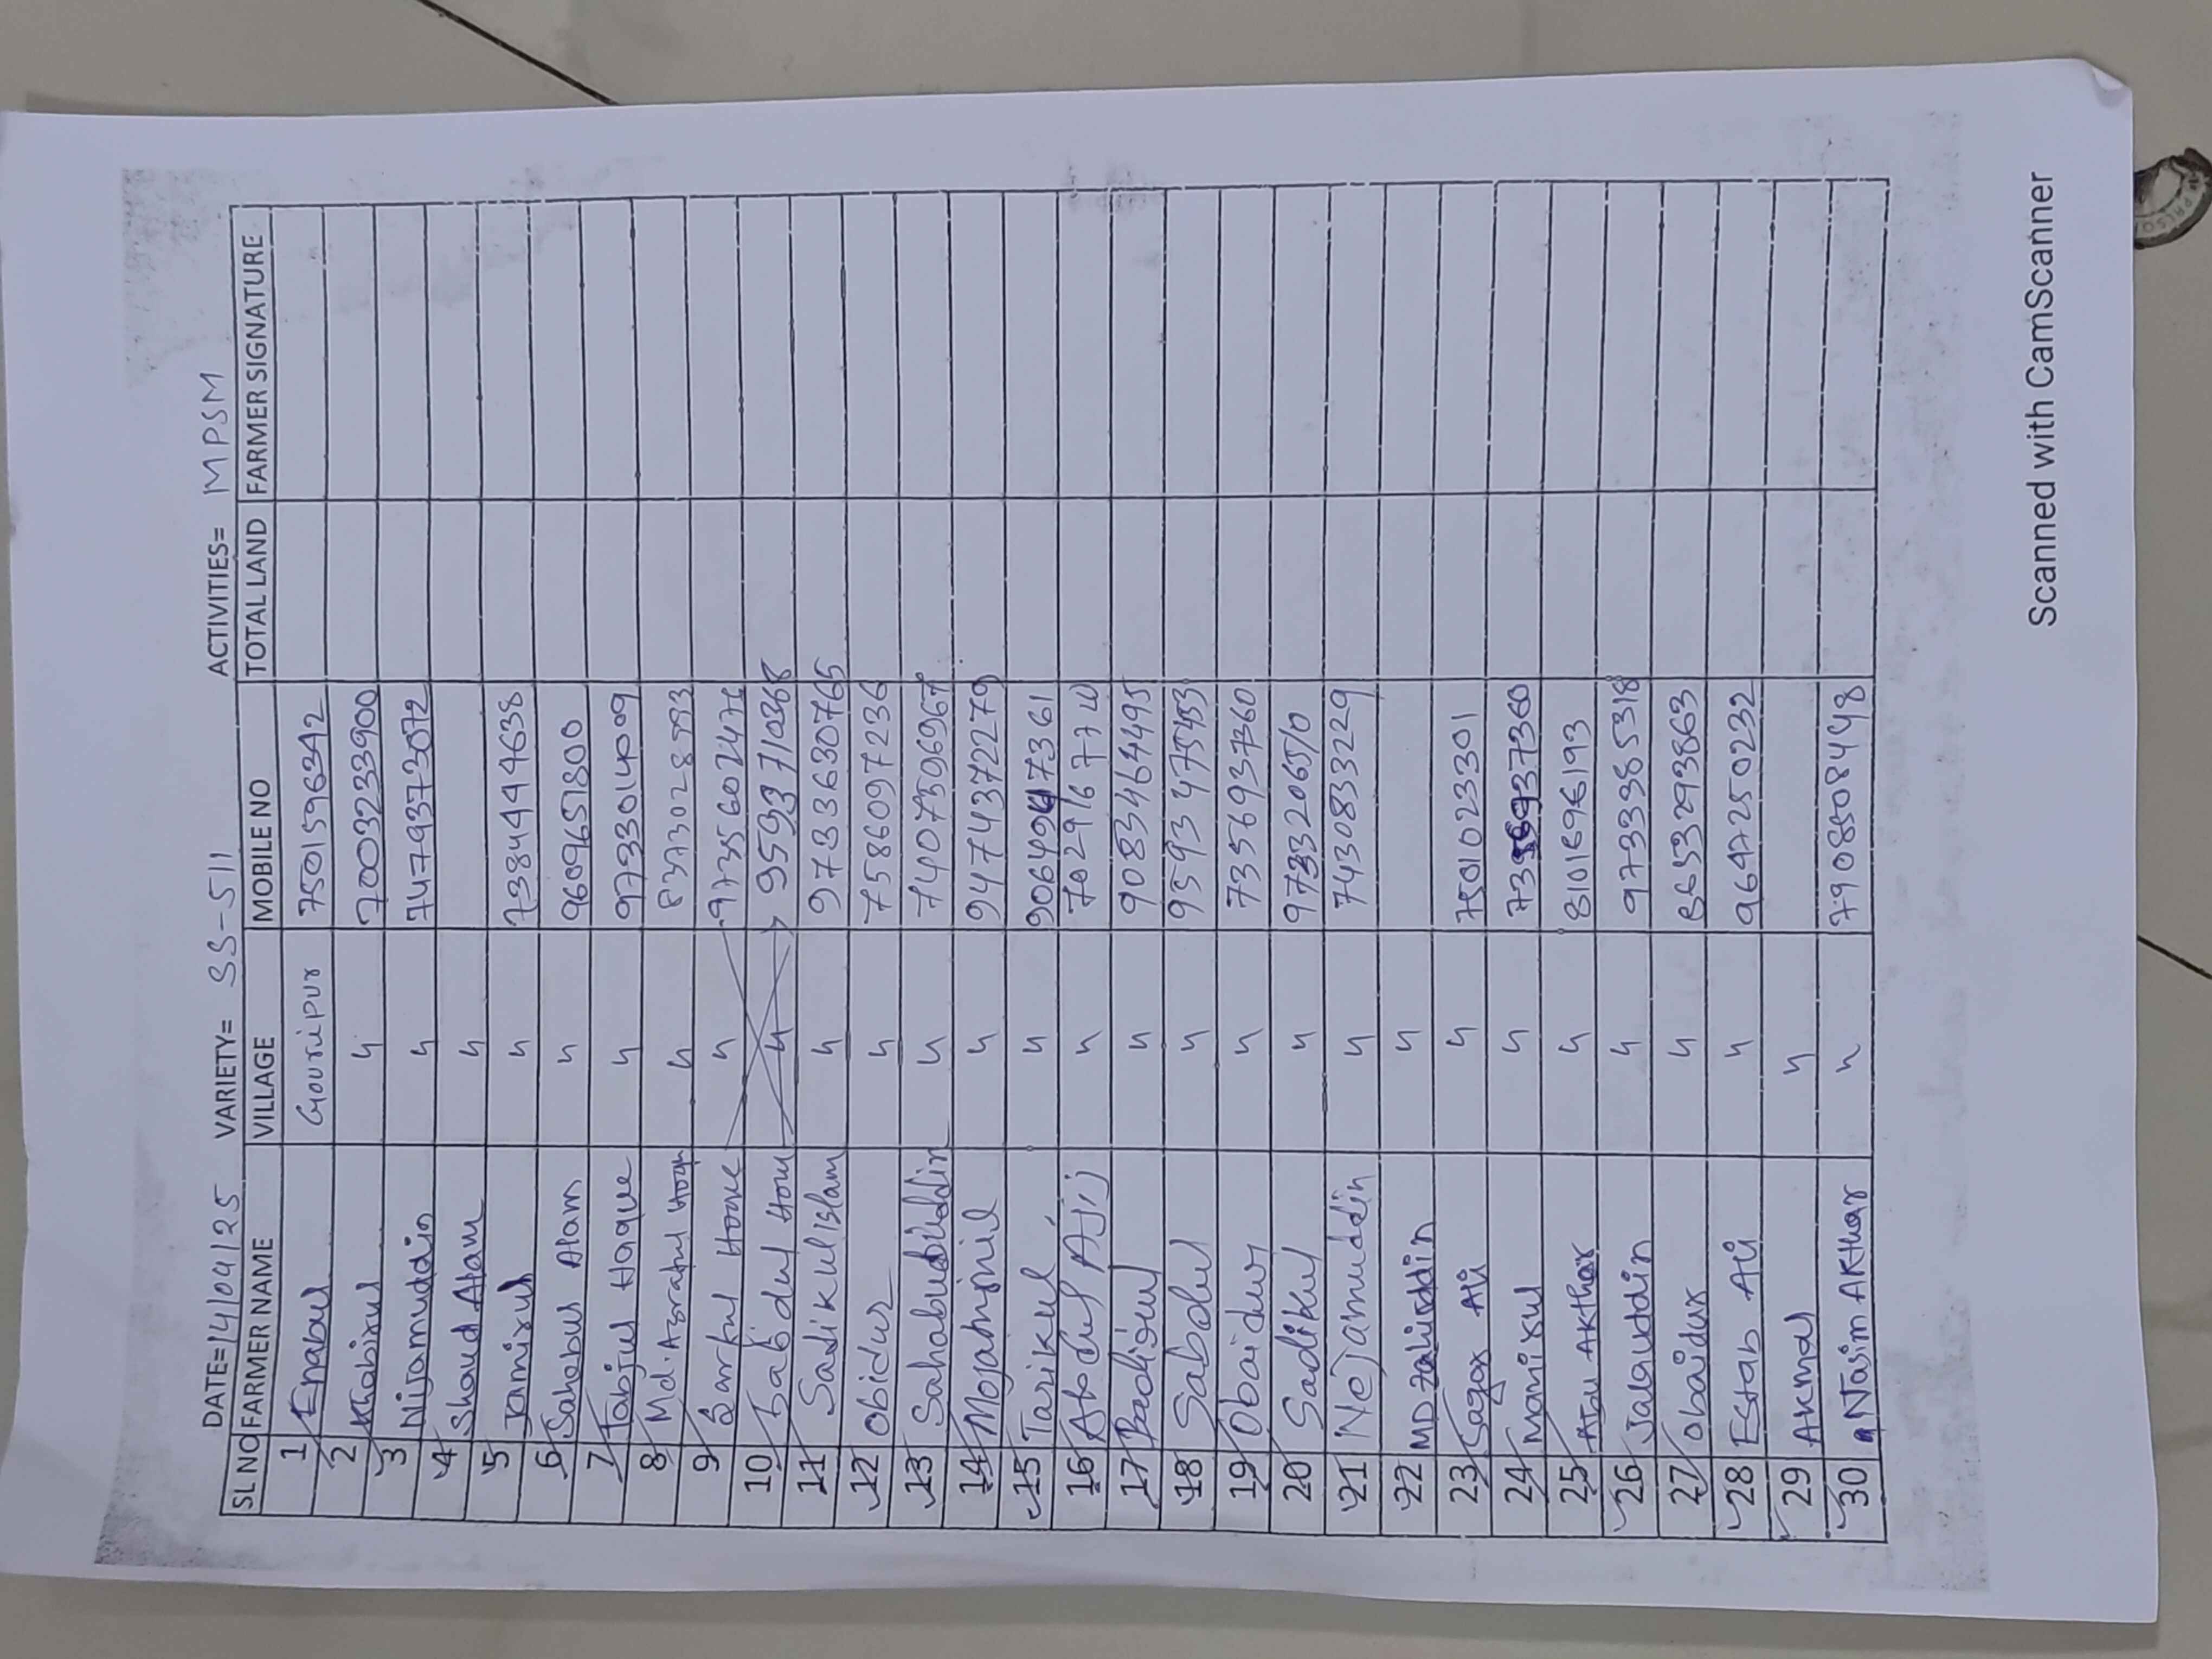 DATE=14/04/25 VARIETY= SS-511 ACTIVITIES= MPSM
SL NO FARMER NAME VILLAGE MOBILE NO TOTAL LAND FARMER SIGNATURE
1 Enabul Gouripur 7501596342
2 Khabirul 〃 7003233900
3 Nijamuddin 〃 7479373072
4 Shoud Alam 〃
5 Jamirul 〃 7384494638
6 Sahabur Alam 〃 9609651800
7 Tabjul Haque 〃 9733014009
8 Md. Asraful Hoqu 〃 8373028993
9 Sarful Hoove 〃 9735602476
10 Sabdul Houv 〃 9593710368
11 Sadikul islam 〃 9733630765
12 Obidur 〃 7586097236
13 Sahabuddin 〃 7407306967
14 Mojamjnil 〃 9474372279
15 Tarikul 〃 9064947361
16 Abdul Ajij 〃 7029167710
17 Badirul 〃 9083464495
18 Sabdul 〃 9593475453
19 Obaidur 〃 7356937360
20 Sadikul 〃 9733206510
21 Nejamuddin 〃 7430833229
22 MD Zahiruddin 〃
23 Sagar Ali 〃 7501023301
24 Manirul 〃 7356937360
25 Abu Akthar 〃 8101696193
26 Jalauddin 〃 9733385318
27 Obaidur 〃 8653293863
28 Estab Ali 〃 9647250232
29 Akmal 〃
30 Nasim Akthar 〃 7908508448
Scanned with CamScanner